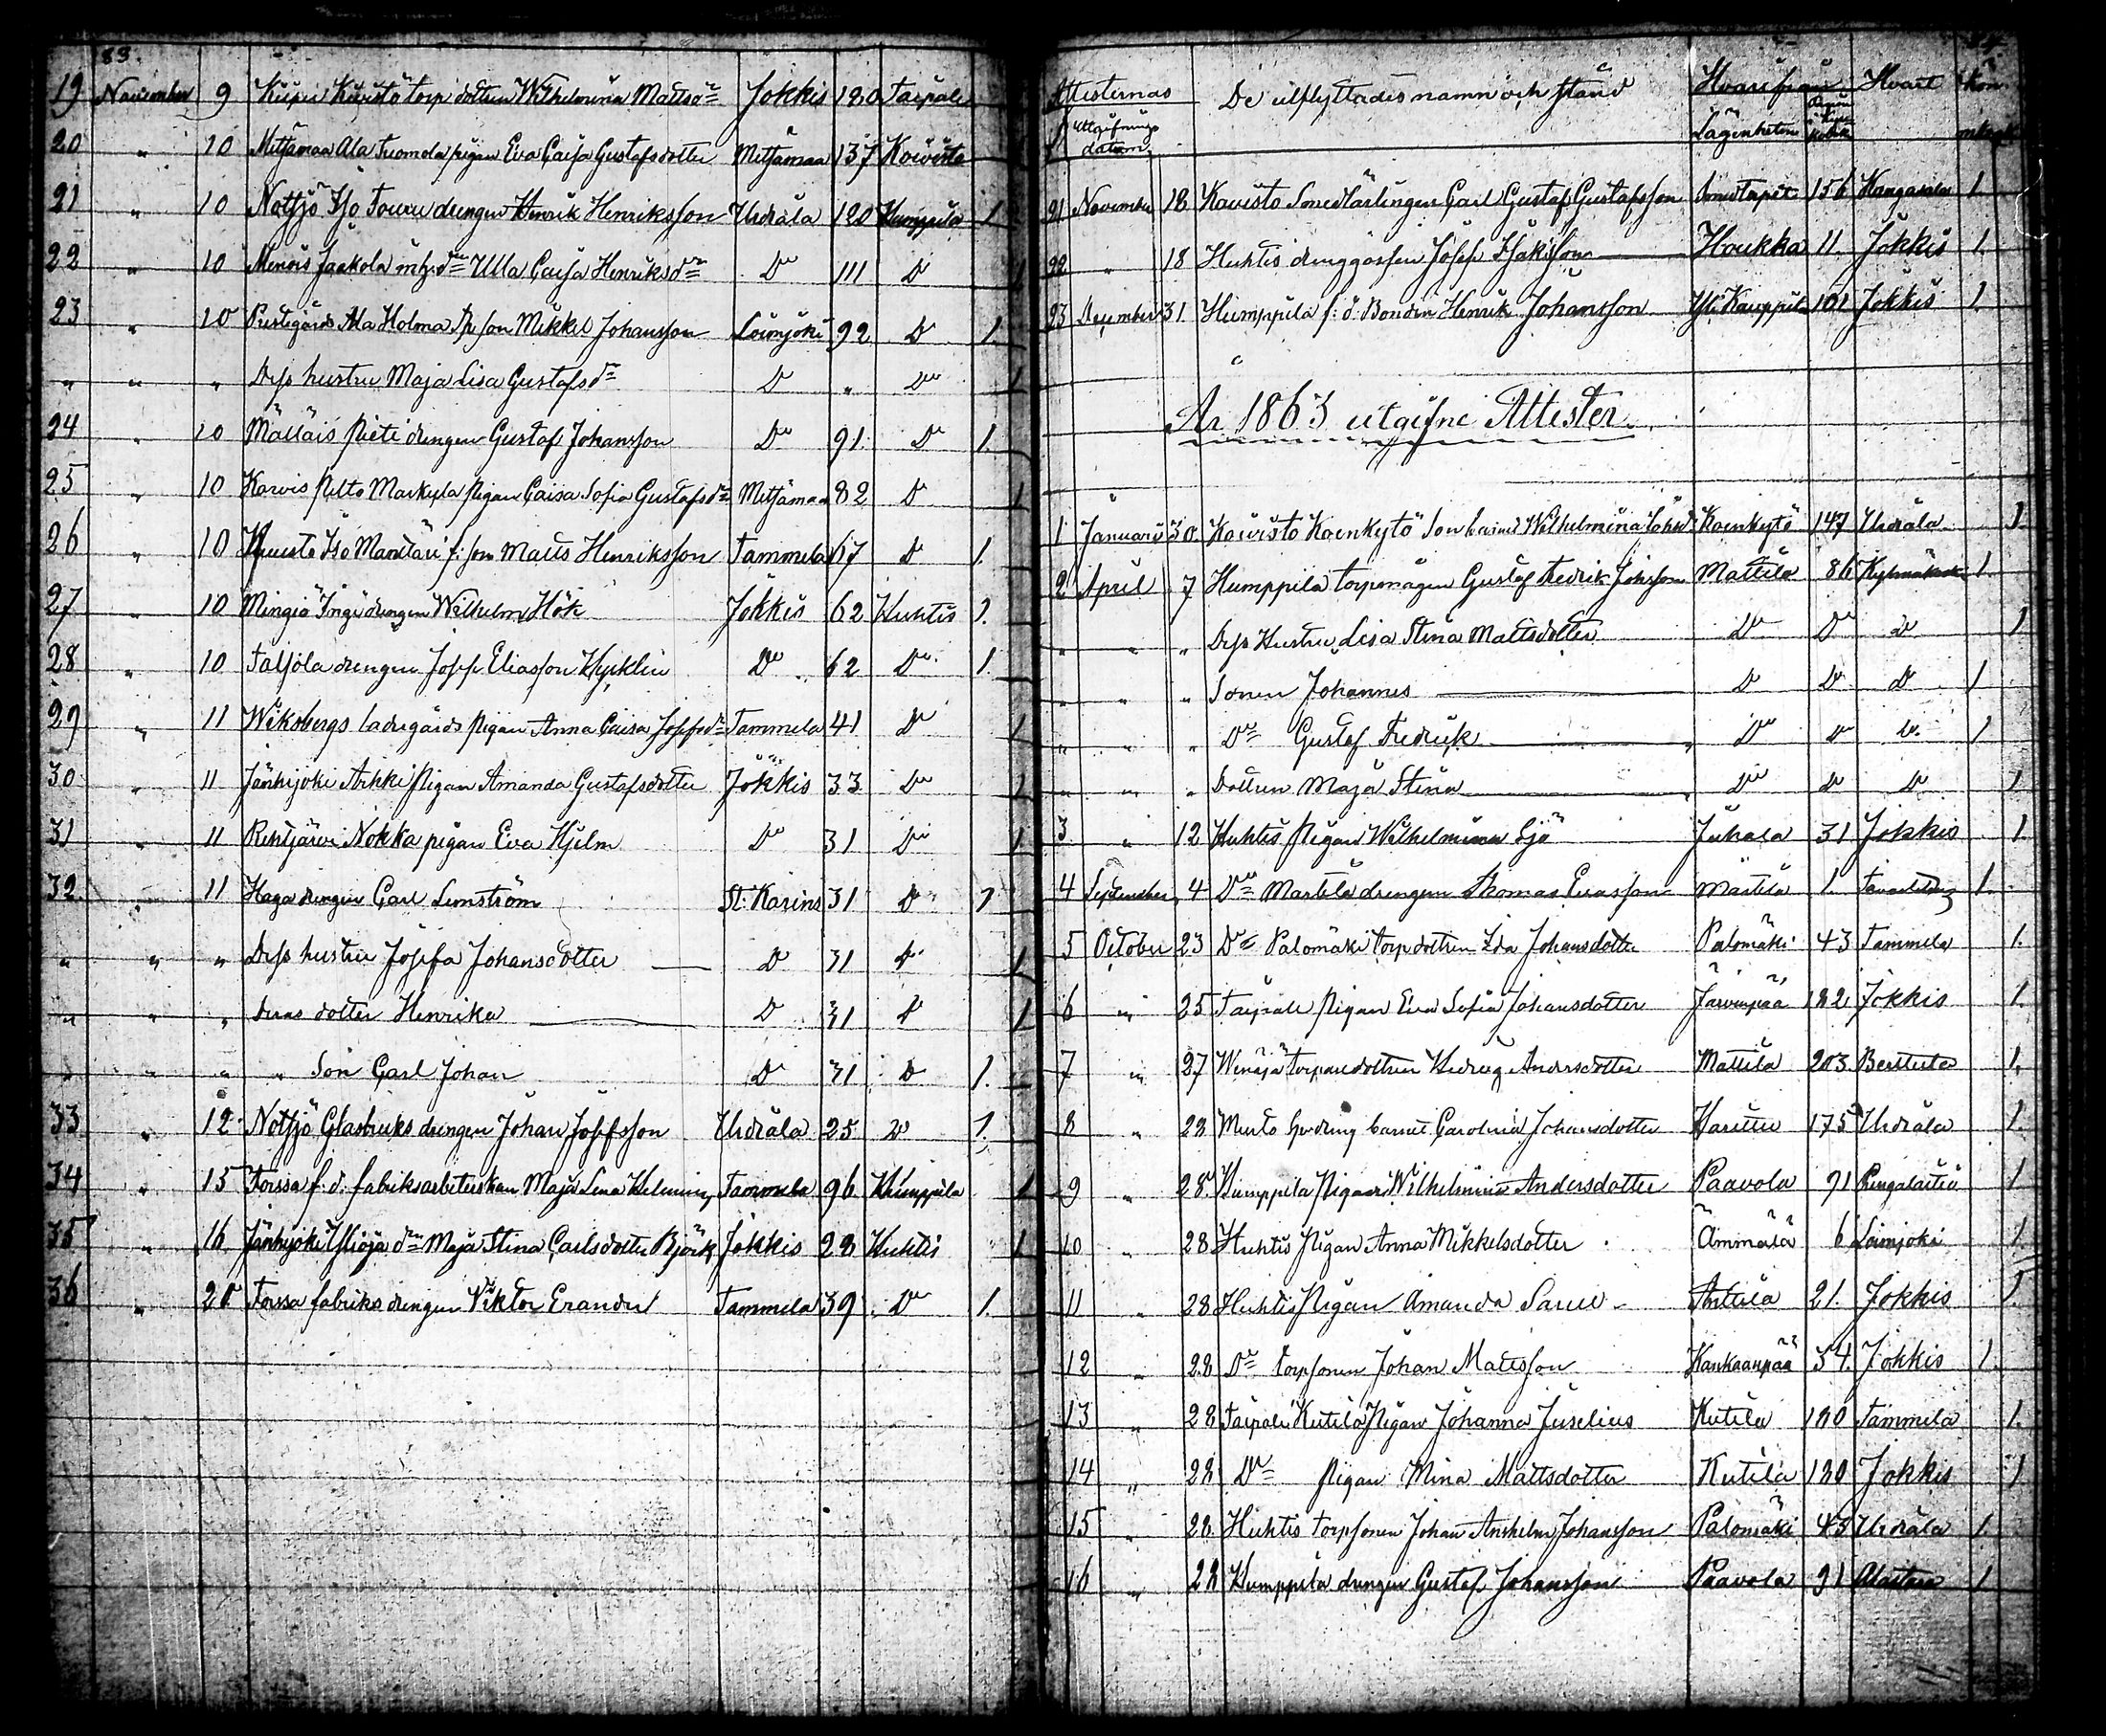 83.
19 November 9 Kuisto torp dottern Wilhelmina Mattsdr Jokkis 180 Taipale
20 " 10 Mitjämaa Ala Tuomola pigan Eva Caisa Gustafsdotter Mitjämaa 137 Koivisto
21 " 10 Nottjö Iso Touru drengen Henrik Henriksson Urdiala 120 Humppila 1
22 " 10 Menois Jaakola Ulla Caisa Henriksdr Do 111 Do 1
23 " 10 Prestgårds Ala Holma Mikkel Johansson Loimjoki 92 Do 1.
" " " Dess hustru Maja Lisa Gustafsdr Do " Do 1
24 " 10 Mälläis Pieti drengen Gustaf Johansson Do 91. Do 1.
25 " 10 Karvis Pelto Markula pigan Caisa Sofia Gustafsdr Mitjämaa 82 Do 1
26 " 10 Iso Mantäri f: son Matts Henriksson Tammela 67 Do 1.
27 " 10 Mingiö Ingi drengen Wilhelm Hök Jokkis 62 Huhtis 1.
28 " 10 Taljola drengen Josef Eliasson Hycklin Do 62 Do 1.
29 " 11 Wiksbergs ladugårds pigan Anna Caisa Josefsdr Tammela 41 Do 1
30 " 11 Jänhijoki Arkki pigan Amanda Gustafsdotter Jokkis 33 Do 1
31 " 11 Rehtjärvi Nokka pigan Eva Hjelm Do 31 Do 1.
32. " 11 Haga drengen Carl Lenström St: Karins 31 Do 1
" " " Dess hustru Josefa Johansdotter Do 31 Do 1
" " " Deras dotter Henrika Do 31 Do 1
" " " " Son Carl Johan Do 31 Do 1.
33 " 12 Nottjö Glasbruks drengen Johan Josefsson Urdiala 25 Do 1.
34 " 15 Forssa f. d. fabriksarbeterskan Maja Lena Helming Tammela 96 Humppila 1
35 " 16 Jänhijoki Ylioja dr Maja Stina Carlsdotter Björk Jokkis 28 Huhtis 1
36 " 20 Forssa fabriks drengen Viktor Erander Tammela 39 Do 1.
84
Attesternas De utflyttades namn och stånd Hvarifrån Hvart Kön
Utgifnings datum Lägenheten
21 November 18 Koivisto Smedlärlingen Carl Gustaf Gustafsson Smedtorpet 156 Kangasala 1.
22 " 18 Huhtis drenggossen Josef Isaksson Houkka 11. Jokkis 1.
23 December 31 Humppila f: d: Bonden Henrik Johansson Yli Kauppila 101 Jokkis 1.
År 1863 utgifne Attester.
1 Januari 30. Koivisto Koenkytö Wilhelmina Koenkytö 147 Urdiala 1
2 April 7 Humppila torpmågen Gustaf Fredrik Johsson Mattila 86 1.
" " " Dess Hustru Lisa Stina Mattsdotter Do Do Do 1
" " " Sonen Johannes Do Do Do 1
" " " Do Gustaf Fredrik Do Do Do 1
" " " Dottren Maja Stina Do Do Do 1
3 " 12 Huhtis Pigan Wilhelmina Sjö Juhala 31 Jokkis 1.
4 September 4 Do Martela drengen Thomas Ericsson Martela 1. 1.
5 October 23 Do Palomäki torp dottren Ida Johansdotter Palomäki 43 Tammela 1.
6 " 25 Taipale Pigan Eva Sofia Johansdotter Järvenpää 182. Jokkis 1.
7 " 27 Wenäjä torpare dottren Hedvig Andersdotter Mattila 203. 1.
8 " 28 Murto barnet Carolina Johansdotter Haritu 175 Urdiala 1.
9 " 28 Humppila Pigan Wilhelmina Andersdotter Paavola 91 Pungalaitio 1
10 " 28 Huhtis Pigan Anna Mikkelsdotter Ämmälä 6 Loimjoki 1.
11 " 28 Huhtis Pigan Amanda Anttila 21. Jokkis 1.
12 " 28 Do torpsonen Johan Mattsson Kankaanpää 34. Jokkis 1.
13 " 28 Taipale Kutila Pigan Johanna Juselius Kutila 180 Tammela 1.
14 " 28 Do Pigan Mina Mattsdotter Kutila 180 Jokkis 1
15 " 28. Huhtis torpsonen Johan Anshelm Johansson Palomäki 43 Urdiala 1
16 " 28 Humppila drengen Gustaf Johansson Paavola 91 Alastaro 1